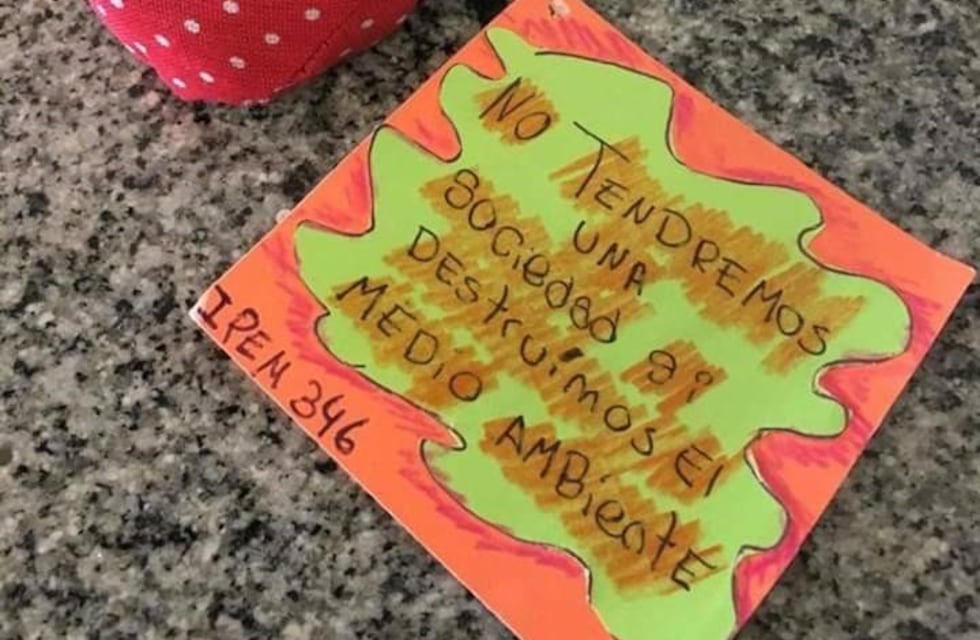 NO TENDREMOS
UNA
SOCiedad Si
DEStruimos El
MEDiO AMBieNtE
IPEM 346